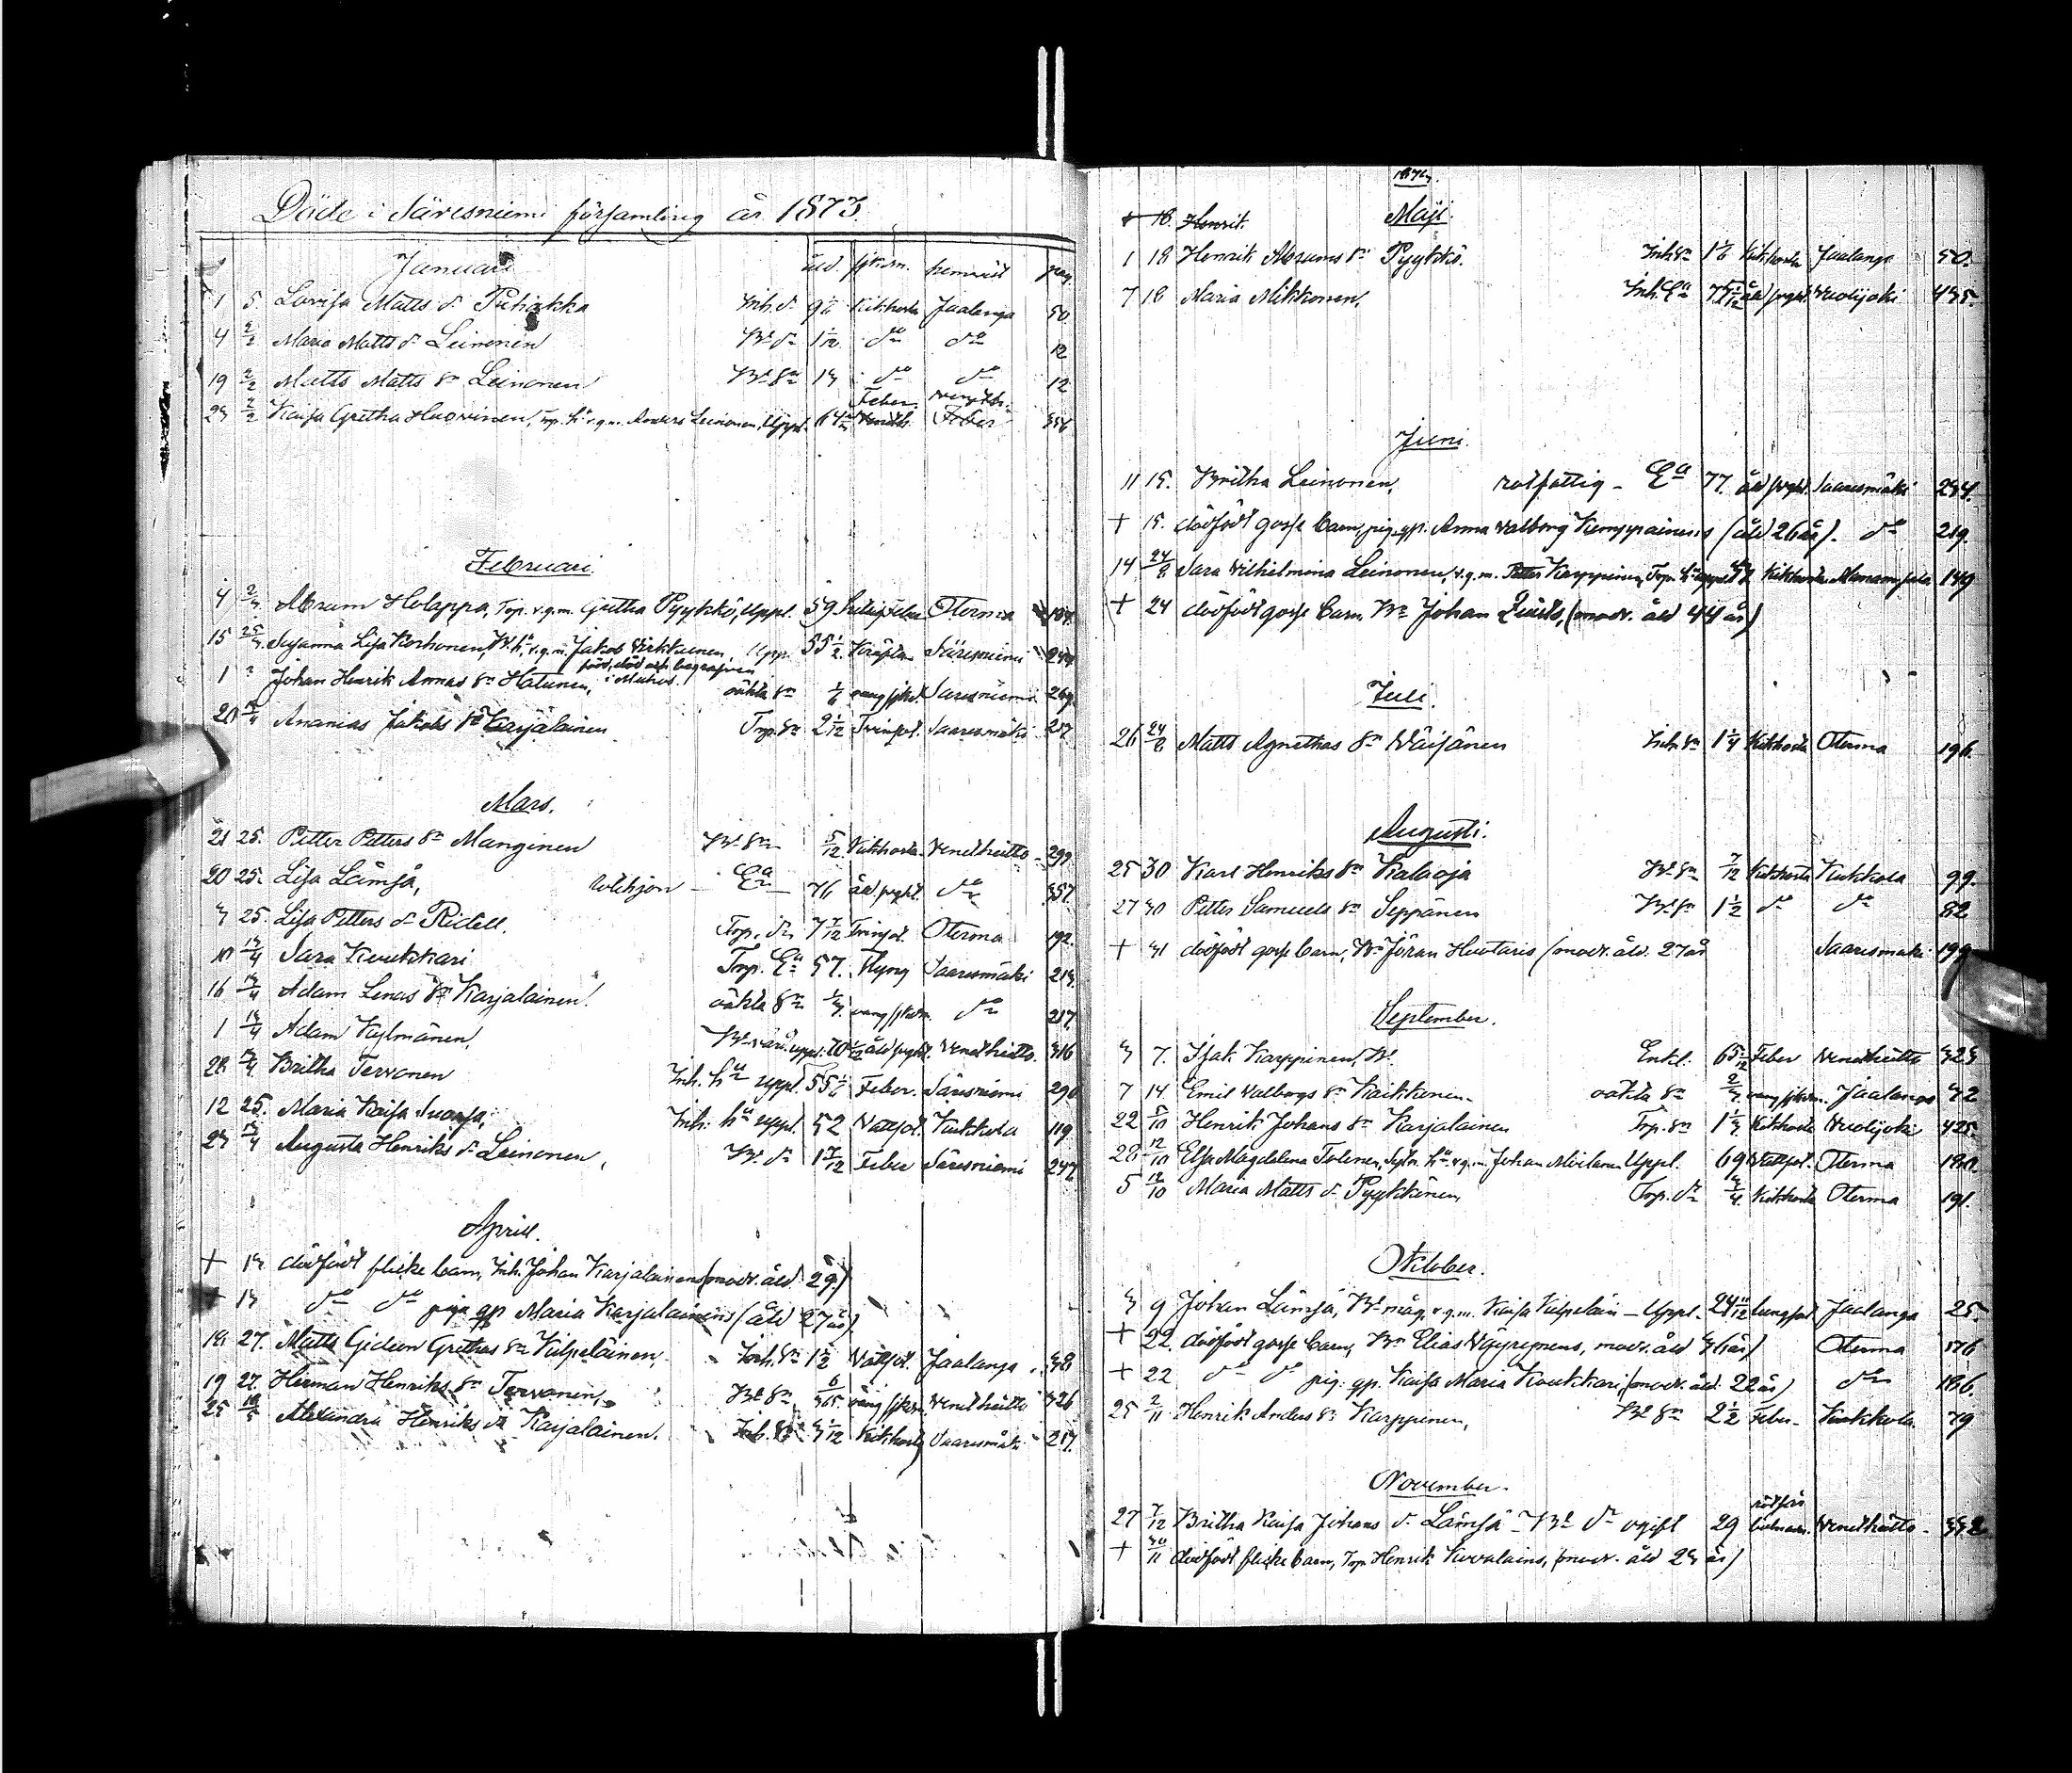 Döde i Säresniemi församling år 1873.
Januari åld. sjukdm. hemvist pag.
1 5. Lovisa Matts dr Pitirkka Inh. dr 9 1/6 Kikhosta Jaalanga 50.
4 2/2 Maria Matts dr Leinonen Bd dr 1 1/12 do do 12
19 2/2 Matts Matts sn Leinonen Bd sn 13 do do 12
23 2/2 Kaisa Gretha Huovinen, Trp. ha v.g.m. Anders Leinonen, Uppl. 64 Feber
Februari.
4 2/3 Abram Holappa, Torp. v.g.m. Gretha Pyykkö, Uppl. 59 Otermo 187.
15 25/3 Susanna Lisa Korhonen, Bd ha, v.g.m. Jakob Kirkkuinen, Upp. 55 1/2 Kräftan Säresniemi 244
född, död och begrafven
1 " Johan Henrik Annas sn Hatunen, i Muhos. oäkta sn 1/6 oang sjukd. Säresniemi 269.
20 13/4 Ananias Jakobs sn Karjalainen Trp. sn 2 1/12 Tvinsot. Saaresmäki 217
Mars.
21 25. Petter Petters sn Manginen Bd sn 5/12 Kikhosta. Venetheitto 299.
20 25. Lisa Lämsä, Ea 76 åld. svght. do 357.
3 25. Lisa Petters dr Ridell. Torp. dr 7 7/12 Tvinsot. Oterma 192.
10 13/4 Sara Kuukkari Trp. Ea 57. Saaresmäki 213.
16 13/4 Adam Lenas sn Karjalainen. oäkta sn 1/3 oang sjukdm. do 217.
1 13/4 Adam Kylmänen, uppl. 70 1/12 åld. svght. Venetheitto. 316
28 13/4 Britha Tervonen Inh. ha uppl. 55 1/6 Feber. Säresniemi 290
12 25. Maria Kaisa Inh. ha uppl. 52 Vattsot. Kukkola 119
23 13/4 Augusta Henriks dr Leinonen, Bd dr 1 7/12 Feber Säresniemi 247
April.
+ 13 dödfödt flicke barn, Inh. Johan Karjalainens (modr. åld. 29.)
+ 13 do do piga gp Maria Karjalainens (åld 27 år)
18 27. Matts Gideon Grethas sn Kilpeläinen, Inh. sn 1 1/2 Vattsot. Jaalanga 38
19 27. Herman Henriks sn Tervonen, Bd sn 6/365 oang sjukdm. Venetheitto 326
25 18/5 Alexandra Henriks dr Karjalainen. Inh. dr 3 1/12 Kikhosta Saaresmäki 217.
+ 18. Henrik. Maji.
1 18 Henrik Abrams sn Pyykkö. Inh. sn 1 1/6 Kikhosta Jaalanga 50.
7 18 Maria Mikkonen, Inh. Ea 77 åld svght. Vuolijoki 435.
Juni.
11 15. Britha Leinonen, rotfattig - Ea 77. åld svght. Saaresmäki 234.
+ 15. dödfödt gosse barn, pig. gp. Anna Valborg Kemppainens (åld 26 år). do 219.
14 24/8 Sara Vilhelmina Leinonen, v.g.m. Petter Karppinen, Torp. Kikhosta Manamsalo 149
+ 24 dödfödt gosse barn, Bn Johan (modr. åld 44 år)
Juli
26 24/8 Matts Agnethas sn Väisänen Inh. sn 1 1/4 Kikhosta Oterma 196.
Augusti.
25 30 Karl Henriks sn Kalaoja Bd sn 7/12 Kikhosta Kukkola 99.
27 30 Petter Samuels sn Seppänen Bd sn 1 1/2 do do 82
+ 31 dödfödt gosse barn, Bn Jöran Huotaris (modr. åld. 27 år Saaresmäki 199
September.
3 7. Isak Karppinen, Bd. Enkl. 65 Feber Venetheitto 323
7 14. Emil Valborgs sn Kaikkonen oäkta sn 2/3 oang sjukdm. Jaalanga 32
22 5/10 Henrik Johans sn Karjalainen Trp. sn 1 1/3 Kikhosta Vuolijoki 425.
28 12/10 Elsa Magdalena Tolonen, v.g.m. Johan Moilanen Uppl. 69 Vattsot. Oterma 180.
5 12/10 Maria Matts dr Pyykkönen, Trp. dr 3/4 Kikhosta Oterma 191.
Oktober.
3 9 Johan Lämsä, Bd måg, v.g.m. Kaisa Kilpeläin - Uppl. 24 11/12 lungsot Jaalanga 25.
+ 22. dödfödt gosse barn, Bn Elias Väyrynens, modr. åld 36 år) Oterma 176
+ 22 do do pig. gp. Kaisa Maria Koukkari (modr. åld. 22 år) do 186.
25 2/11 Henrik Anders sn Karppinen, Bd sn 2 1/2 Feber Kukkola 79
November.
27 7/12 Britha Kaisa Johans dr Lämsä Bd dr ogift 29 Venetheitto 352
+ 30/11 dödfödt flicke barn, Torp Henrik Kurvalains, (modr. åld 23 år)